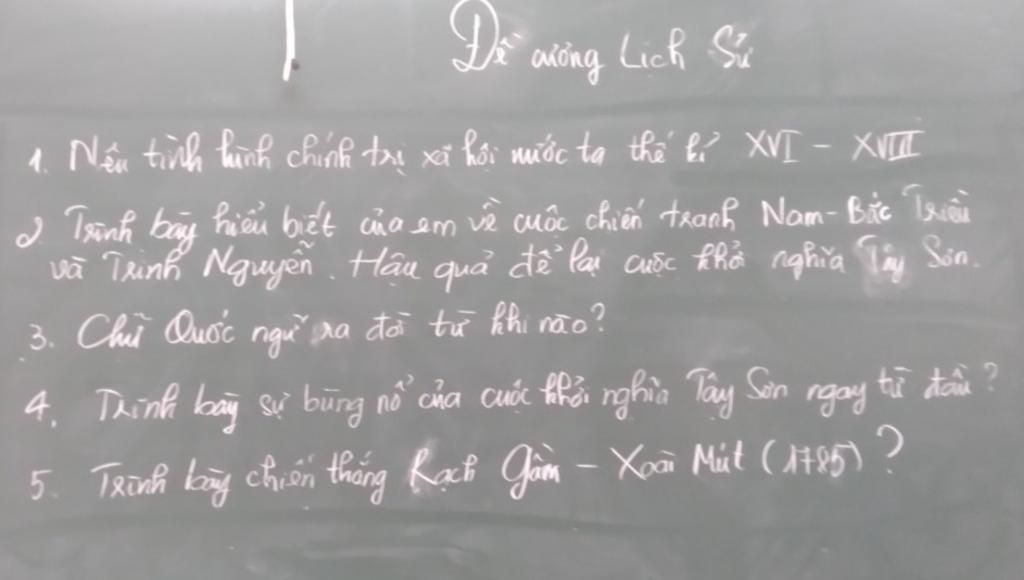 Đề cương Lịch Sử
1. Nêu tình hình chính trị xã hội nước ta thế kỉ XVI - XVIII
2 Trình bày hiểu biết của em về cuộc chiến tranh Nam-Bắc Triều
và Trịnh Nguyễn. Hậu quả để lại cuộc khở nghĩa Tây Sơn.
3. Chữ Quốc ngữ ra đời từ khi nào?
4. Trình bày sự bùng nổ của cuộc khởi nghĩa Tây Sơn ngay từ đầu?
5. Trình bày chiến thắng Rạch Gầm - Xoài Mút (1785)?